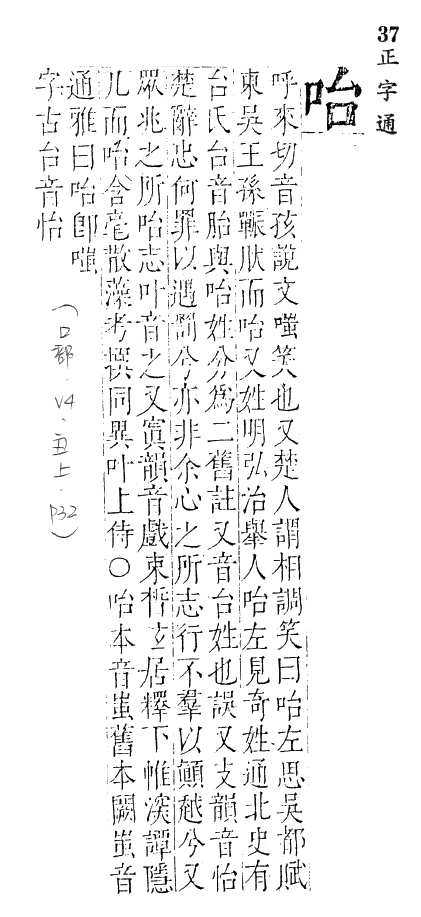 37正字通
咍
呼來切音孩說文嗤笑也又楚人謂相調笑曰咍左思吳都賦
東吳王孫囅肰而咍又姓明弘治舉人咍左見奇姓通北史有
台氏台音胎與咍姓分為二舊註又音台姓也誤又支韻音怡
楚辭忠何罪以遇罰兮亦非余心之所志行不羣以顛越兮又
眾兆之所咍志叶音之又寘韻音戲束皙玄居釋下帷深譚隱
几而咍含毫散藻考撰同異叶上侍○咍本音蚩舊本闕蚩音
通雅曰咍卽嗤
字古台音怡
(口部.V4.丑上.P32)